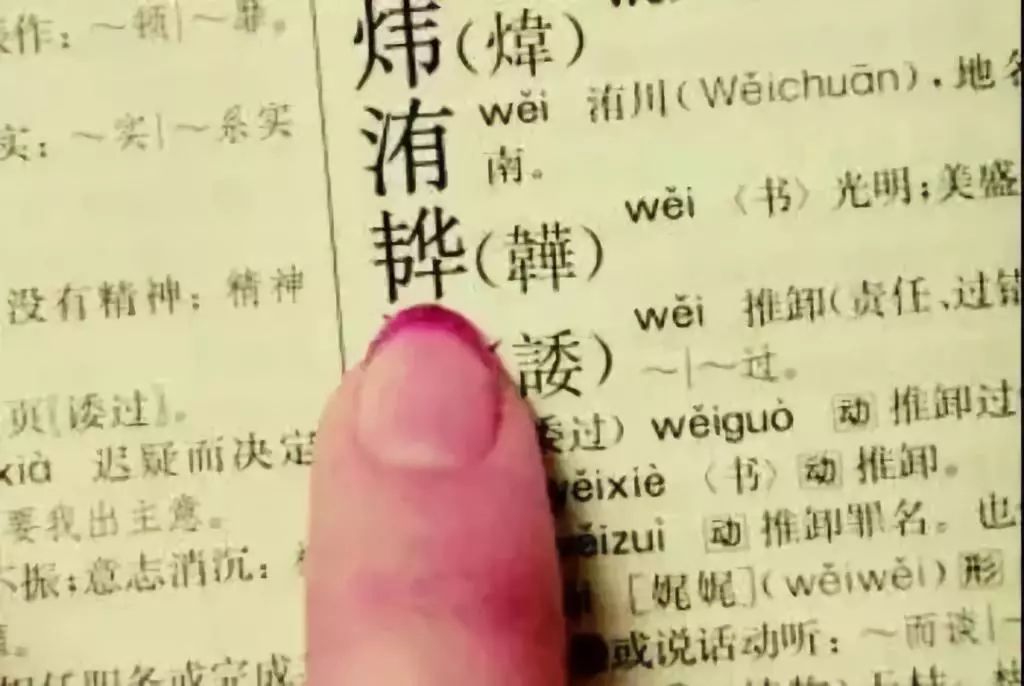 作：～顿｜～靡。
实：～实｜～系实
没有精神；精神
页〖诿过〗。
xià 迟疑而决定
要我出主意。
振；意志消沉：
炜（煒）
洧 wěi 洧川（Wěichuān），地名
南。
韡（韡） wěi 〈书〉光明；美盛
（諉） wěi 推卸（责任、过错
～｜～过。
过）wěiguò 动 推卸过
wěixiè 〈书〉动 推卸。
wěizuì 动 推卸罪名。也
［娓娓］（wěiwěi）形
或说话动听：～而谈｜～